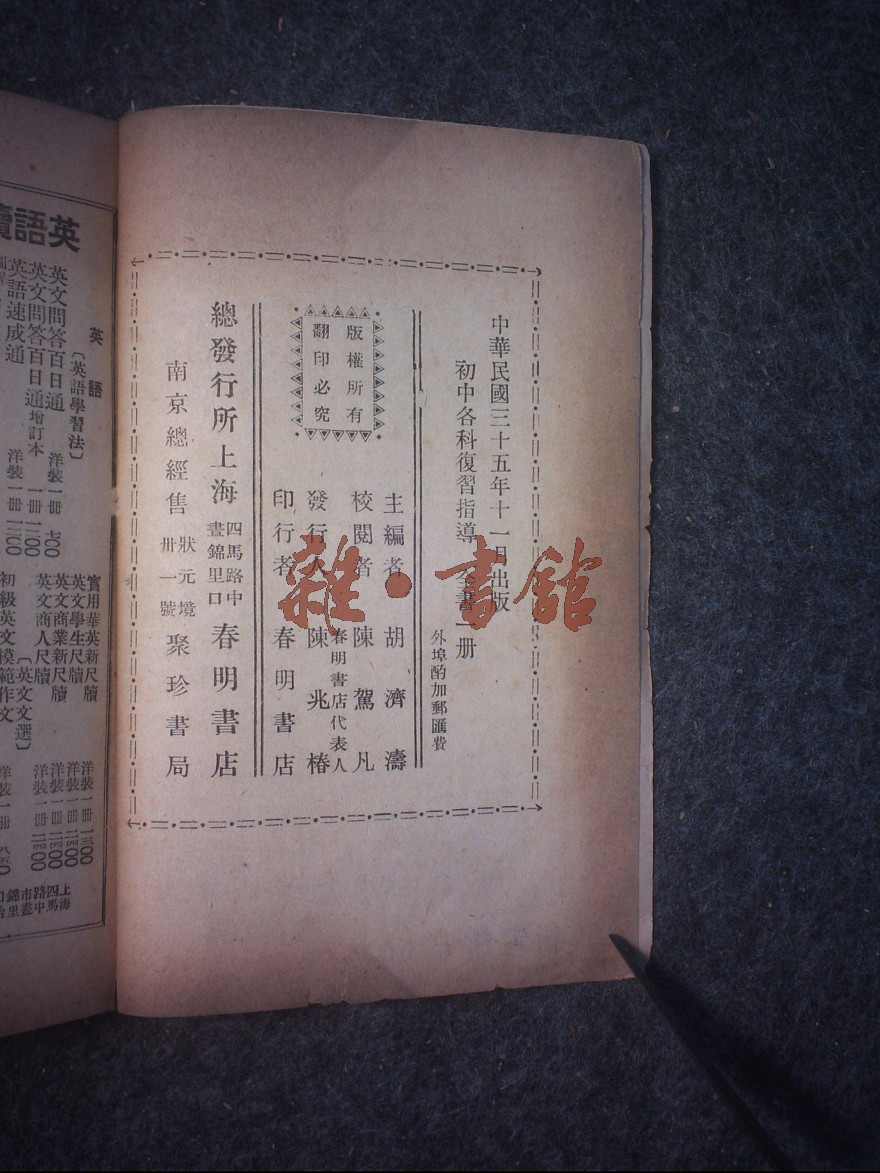 中華民國三十五年十一月出版
初中各科復習指導 全書一册
外埠酌加郵匯費
版權所有
翻印必究
主編者 胡濟濤
校閱者 陳駕凡
發行人 春明書店代表人 陳兆椿
印行者 春明書店
總發行所上海 四馬路中 晝錦里口 春明書店
南京總經售 狀元境 卅一號 聚珍書局
雜·書館
英語
英語
〔英語學習法〕
英文問答百日通 洋裝一册
英文問答百日通增訂本 洋裝一册
英語速成通
實用華英新尺牘 洋裝一册
英文學生尺牘 洋裝一册
英文商業新尺牘 洋裝一册
英文商人尺牘 洋裝一册
〔英文文選〕
初級英文模範作文 洋裝一册
上海四馬路中市晝錦里口